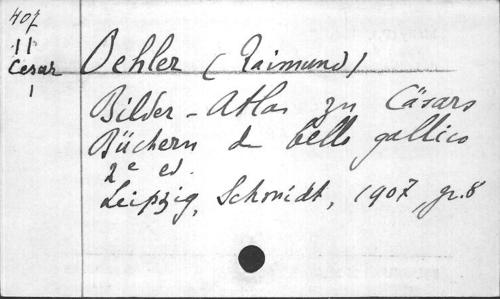 407
11
Cesar
1
Oehler (Raimund)
Bilder-Atlas zu Cäsars
Büchern de bello gallico
2e ed.
Leipzig, Schmidt, 1907, gr. 8